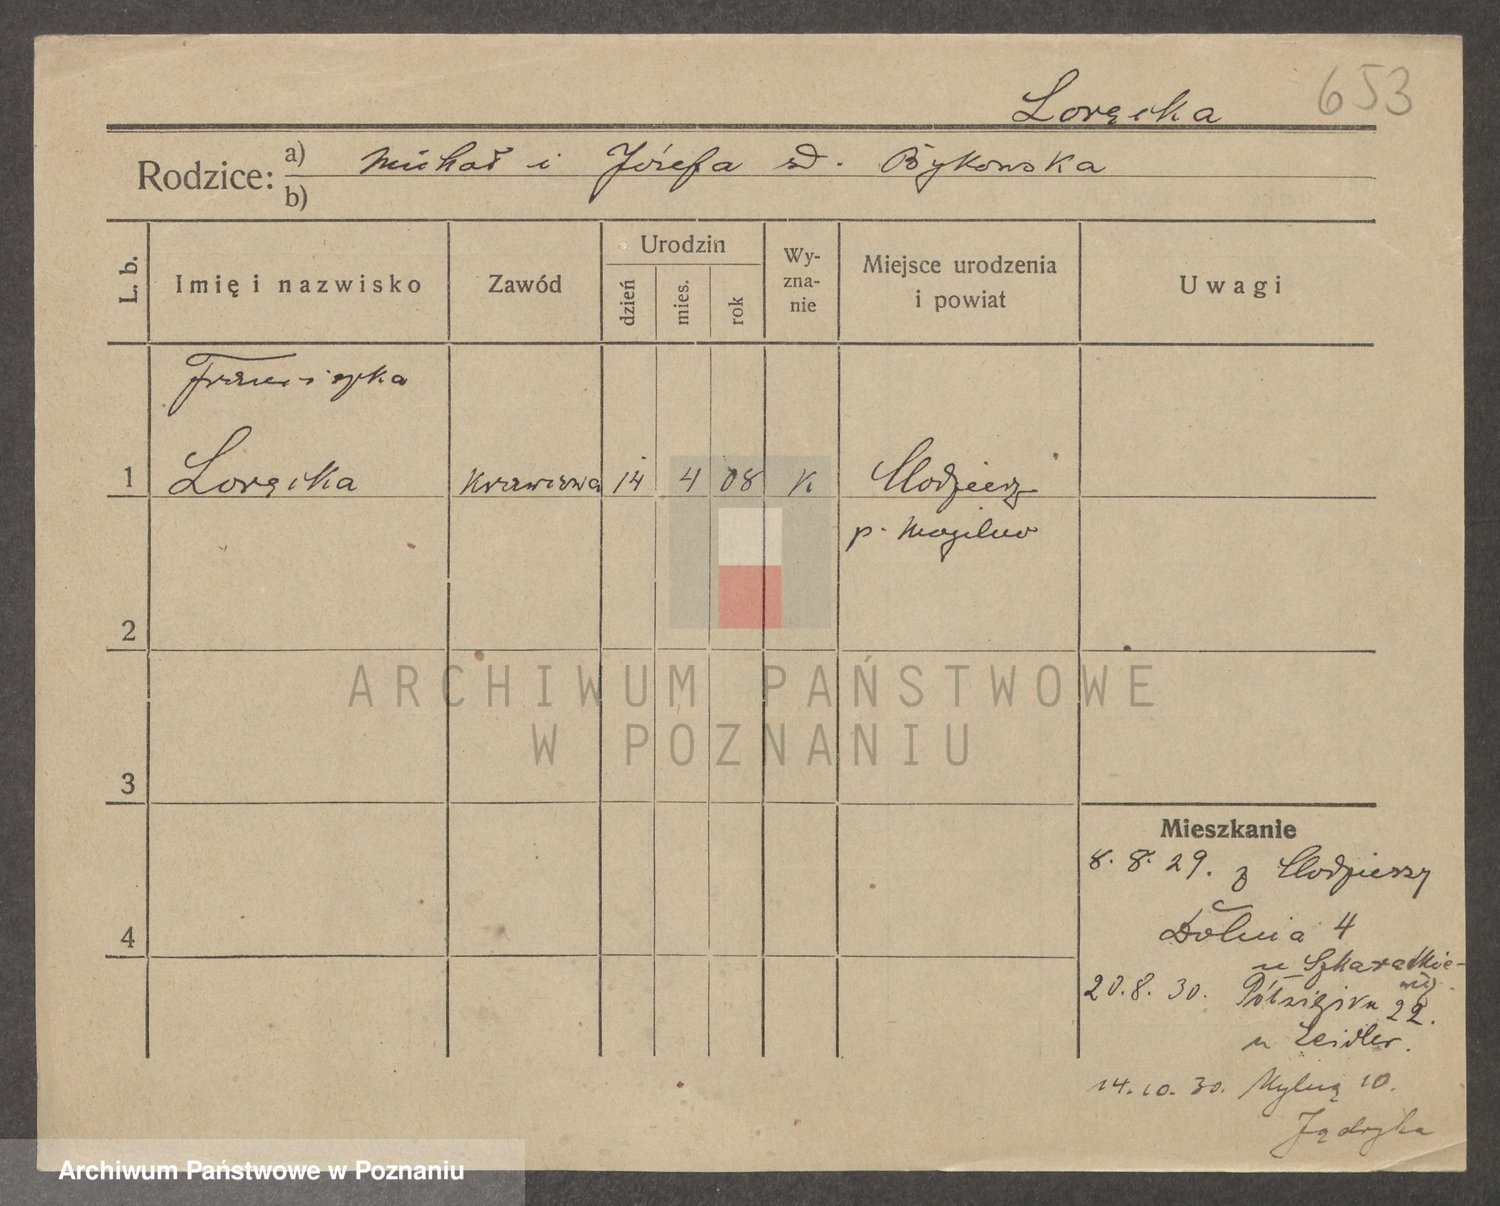 653
Loręcka
Rodzice: a) Michał i Józefa zd. Bykowska
b)
L. b. Imię i nazwisko Zawód Urodzin dzień mies. rok Wyznanie Miejsce urodzenia i powiat Uwagi
Franciszka
1 Loręcka Krawcowa 14 4 08 K
p. Mogilno
2
ARCHIWUM PAŃSTWOWE
W POZNANIU
3
Mieszkanie
8. 8. 29. z
4 Dolna 4
u
20. 8. 30. Półwiejska 22.
u Zeidler.
14. 10. 30. 10.
Archiwum Państwowe w Poznaniu